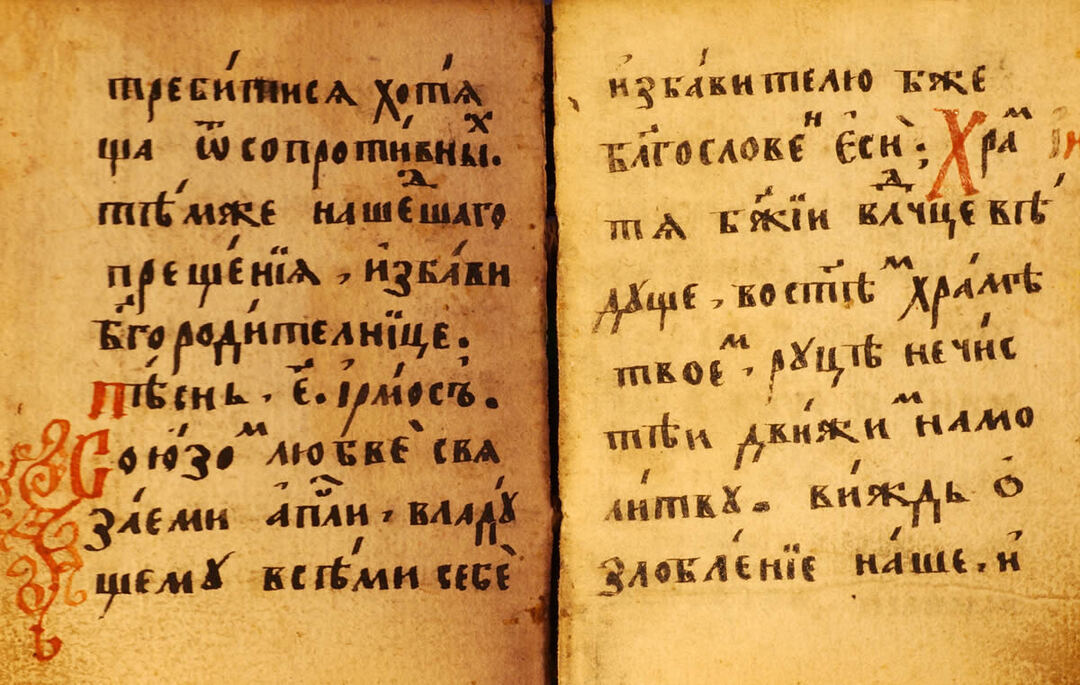 треби́тисѧ хотѧ́
ща ѿсопроти́вны́ⷯ.
тѣ́мже наше́ⷣшаго
преще́нїѧ , и҆зба́ви
бг҃ороди́телнїце.
пѣ́снь . є҃. і҆рмо́съ.
Сою́зоⷨ любвѐ свѧ
за́еми а҆пⷭ҇ли , владꙋ́
щемꙋ всѣ́ми себѐ
и҆зба́вителю бж҃е
бл҃гослове́ⷩ є҆сѝ; Хра́ⷨ
тѧ бж҃їи влⷣчце вѣ́
дꙋще , воспѣ́ⷨ хра́мѣ
твоеⷨ , рꙋцѣ нечи́с
тѣи дви́жиⷨ намо
ли́твꙋ. ви́ждь ѻ҆
ѕлобле́нїе на́ше . и҆